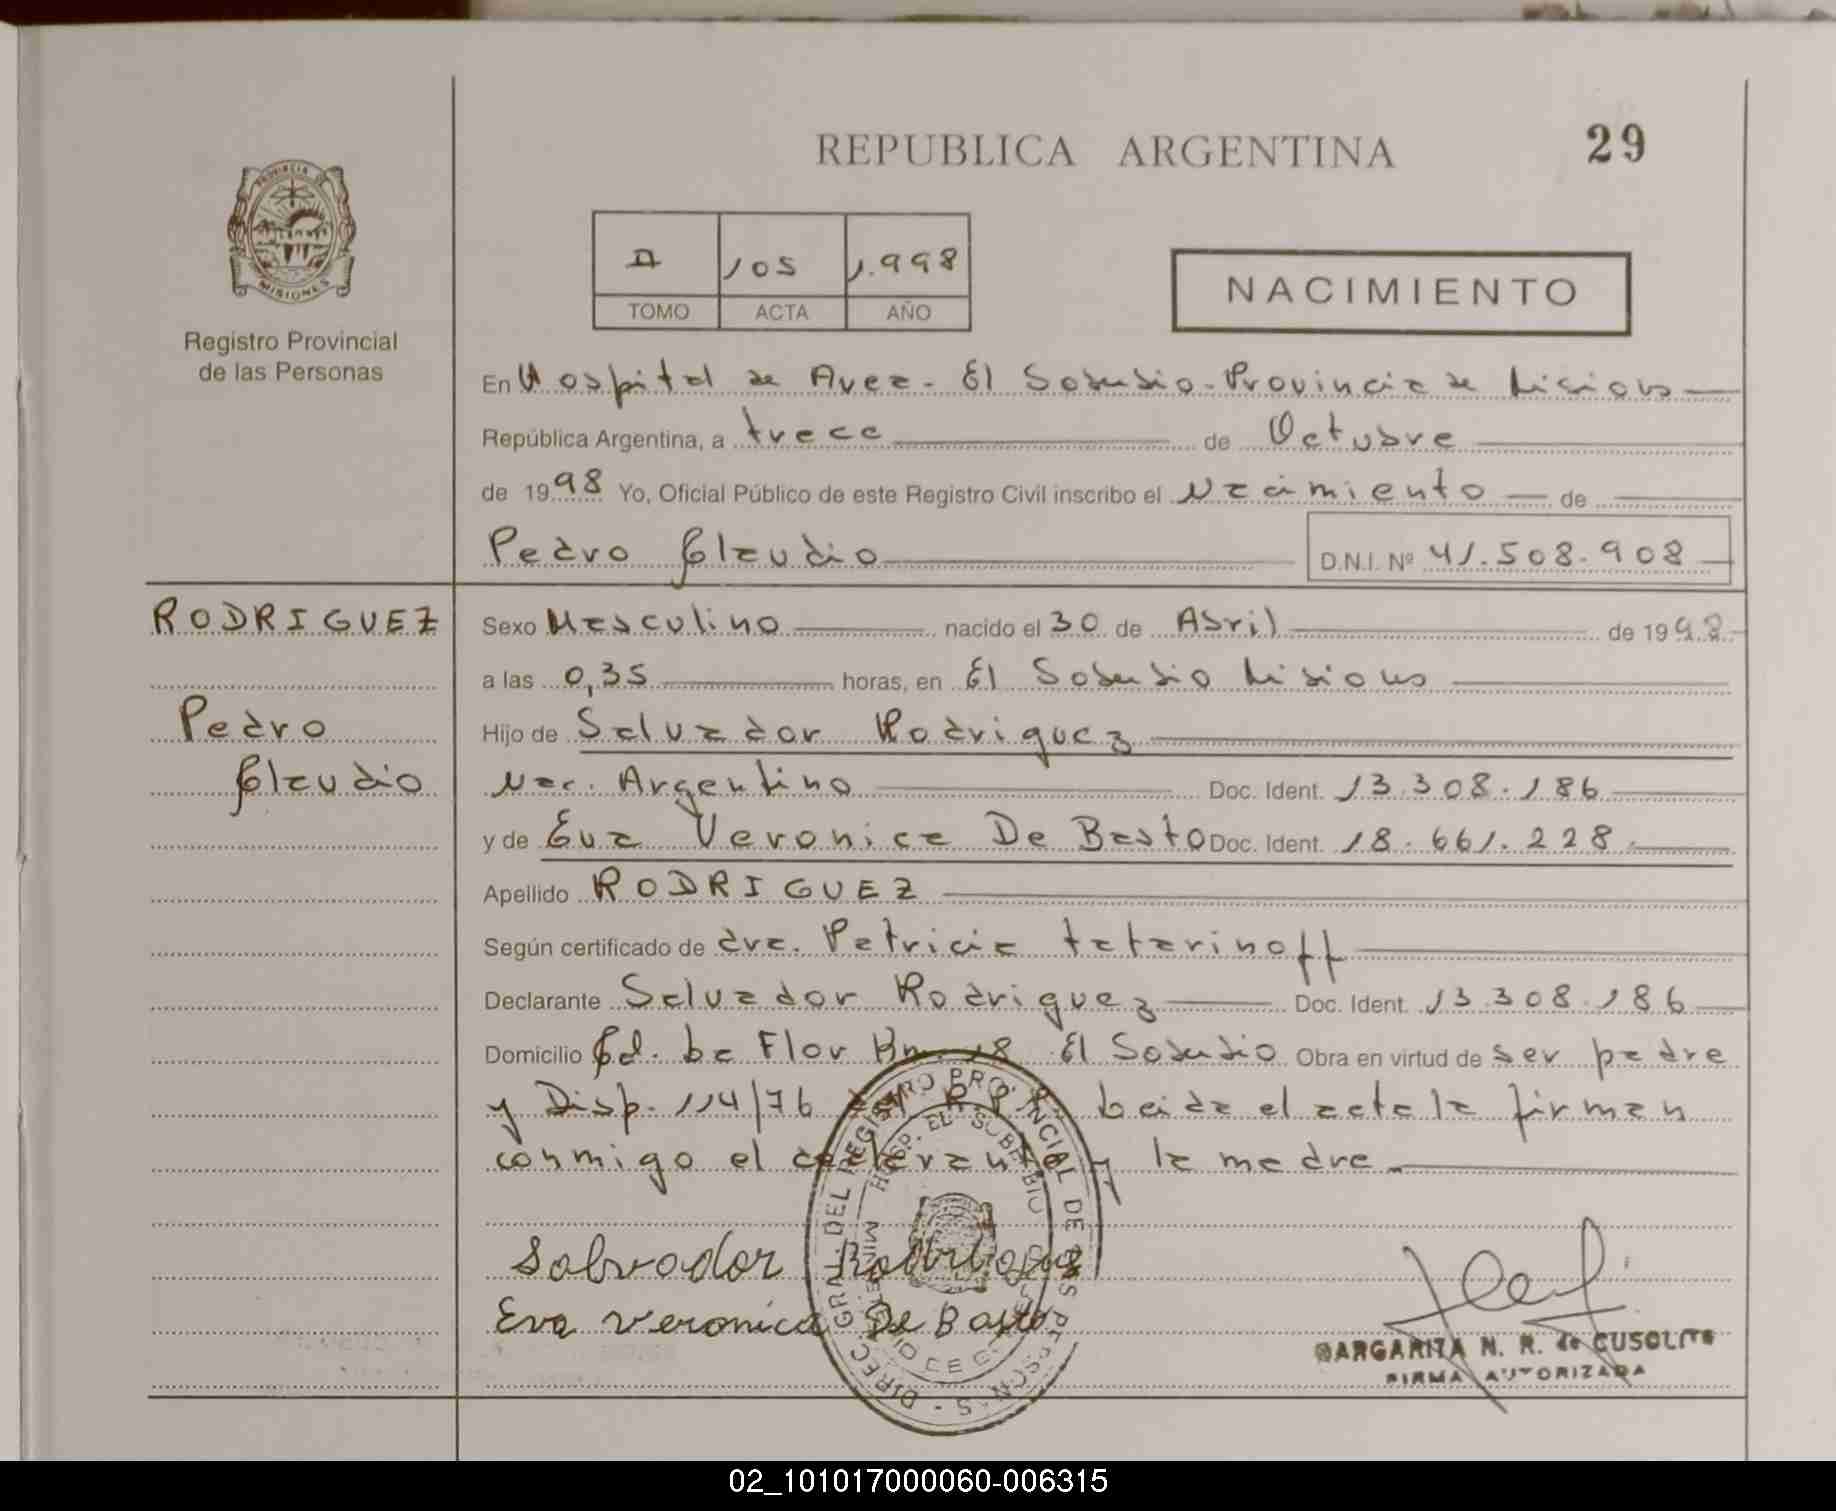 REPUBLICA ARGENTINA
29
PROVINCIA DE
MISIONES
Registro Provincial
de las Personas
II 105 1.998
TOMO ACTA AÑO
NACIMIENTO
En Hospital de Area - El Soberbio - Provincia de Misiones
República Argentina, a trece de Octubre
de 1998 Yo, Oficial Público de este Registro Civil inscribo el Nacimiento de
Pedro Claudio D.N.I. Nº 41.508.908
RODRIGUEZ
Pedro
Claudio
Sexo Masculino nacido el 30 de Abril de 1998
a las 0,35 horas, en El Soberbio Misiones
Hijo de Salvador Rodriguez
Nac. Argentino Doc. Ident. 13.308.186
y de Eva Veronica De Basto Doc. Ident. 18.661.228
Apellido RODRIGUEZ
Según certificado de dra. Patricia tatarinoff
Declarante Salvador Rodriguez Doc. Ident. 13.308.186
Domicilio Cd. La Flor Km. 18 El Soberbio Obra en virtud de ser padre
y Disp. 114/76 del R.P.P. Leida el acta la firman
conmigo el declarante y la madre.
Salvador Rodriguez
Eva Veronica De Basto
DIREC. GRAL. DEL REGISTRO PROVINCIAL DE LAS PERSONAS
HOSP. EL SOBERBIO
MARGARITA N. R. de CUSOLITO
FIRMA AUTORIZADA
02_101017000060-006315